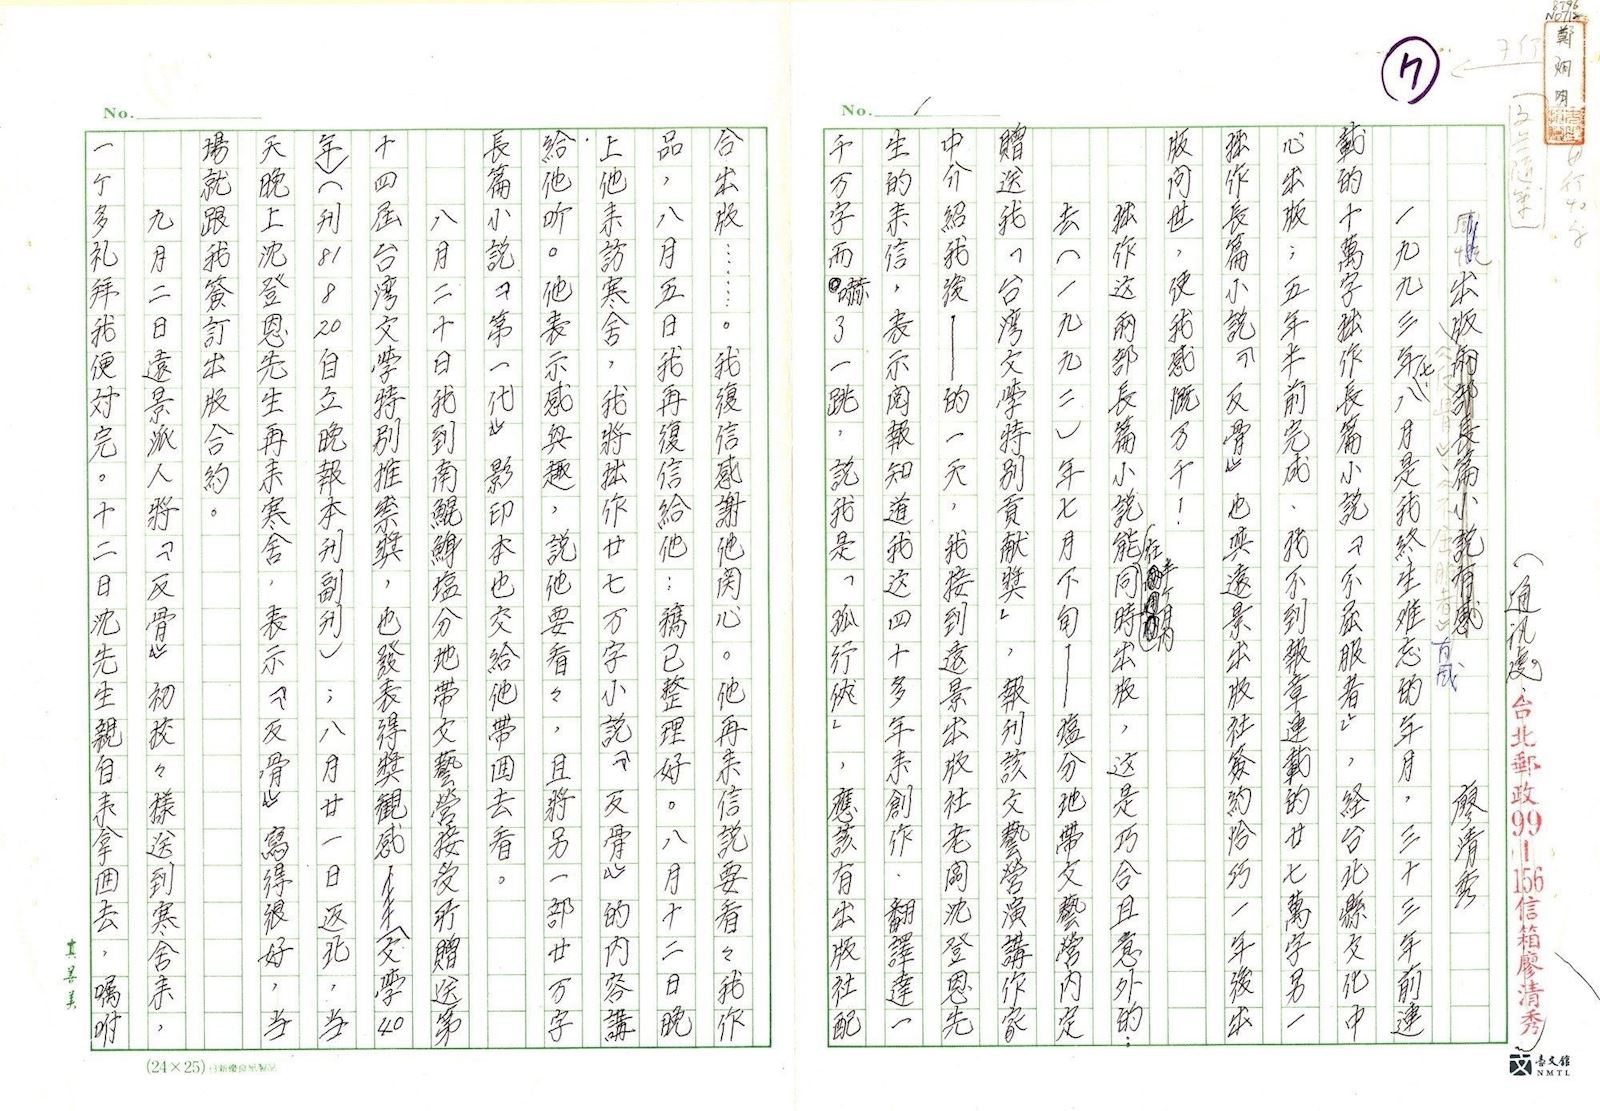 8796
NO712
鄭烱明
7行
文芸随筆
每行42字
ク
No. 1
(通訊處:台北郵政99-156信箱廖清秀)
出版兩部長篇小說有感 廖清秀
《反骨》《不屈服者》有感
一九九三年八月是我終生难忘的年月,三十三年前連
載的十萬字拙作長篇小説『不屈服者』,経台北縣文化中
心出版;五年半前完成、找不到報章連載的廿七萬字另一
拙作長篇小説『反骨』也與遠景出版社簽約恰巧一年後出
版问世,使我感慨万千!
拙作这兩部長篇小説能在同年同月同時出版,这是巧合且意外的:
去(一九九二)年七月下旬——塩分地帶文藝营內定
贈送我「台湾文學特別貢献獎」,報刊該文藝营演講作家
中介紹我後——的一天,我接到遠景出版社老闆沈登恩先
生的来信,表示阅報知道我这四十多年来創作、翻譯達一
千万字而嚇了一跳,説我是「孤行俠」,應該有出版社配
No.
合出版……。我復信感謝他関心。他再来信説要看々我作
品,八月五日我再復信給他:稿已整理好。八月十二日晚
上他来訪寒舍,我將拙作廿七万字小説『反骨』的內容講
給他听。他表示感興趣,說他要看々,且將另一部廿万字
長篇小説『第一代』影印本也交給他帶囬去看。
八月二十日我到南鯤鯓塩分地帶文藝营接受所贈送第
十四屆台湾文學特別推崇獎,也發表得獎観感——文學40
年(刊81 8 20自立晚報本刊副刊);八月廿一日返北,当
天晚上沈登恩先生再来寒舍,表示『反骨』寫得很好,当
場就跟我簽訂出版合約。
九月二日遠景派人將『反骨』初校々様送到寒舍来,
一个多礼拜我便对完。十二日沈先生親自来拿囬去,囑咐
真善美
(24×25)
台文館
NMTL